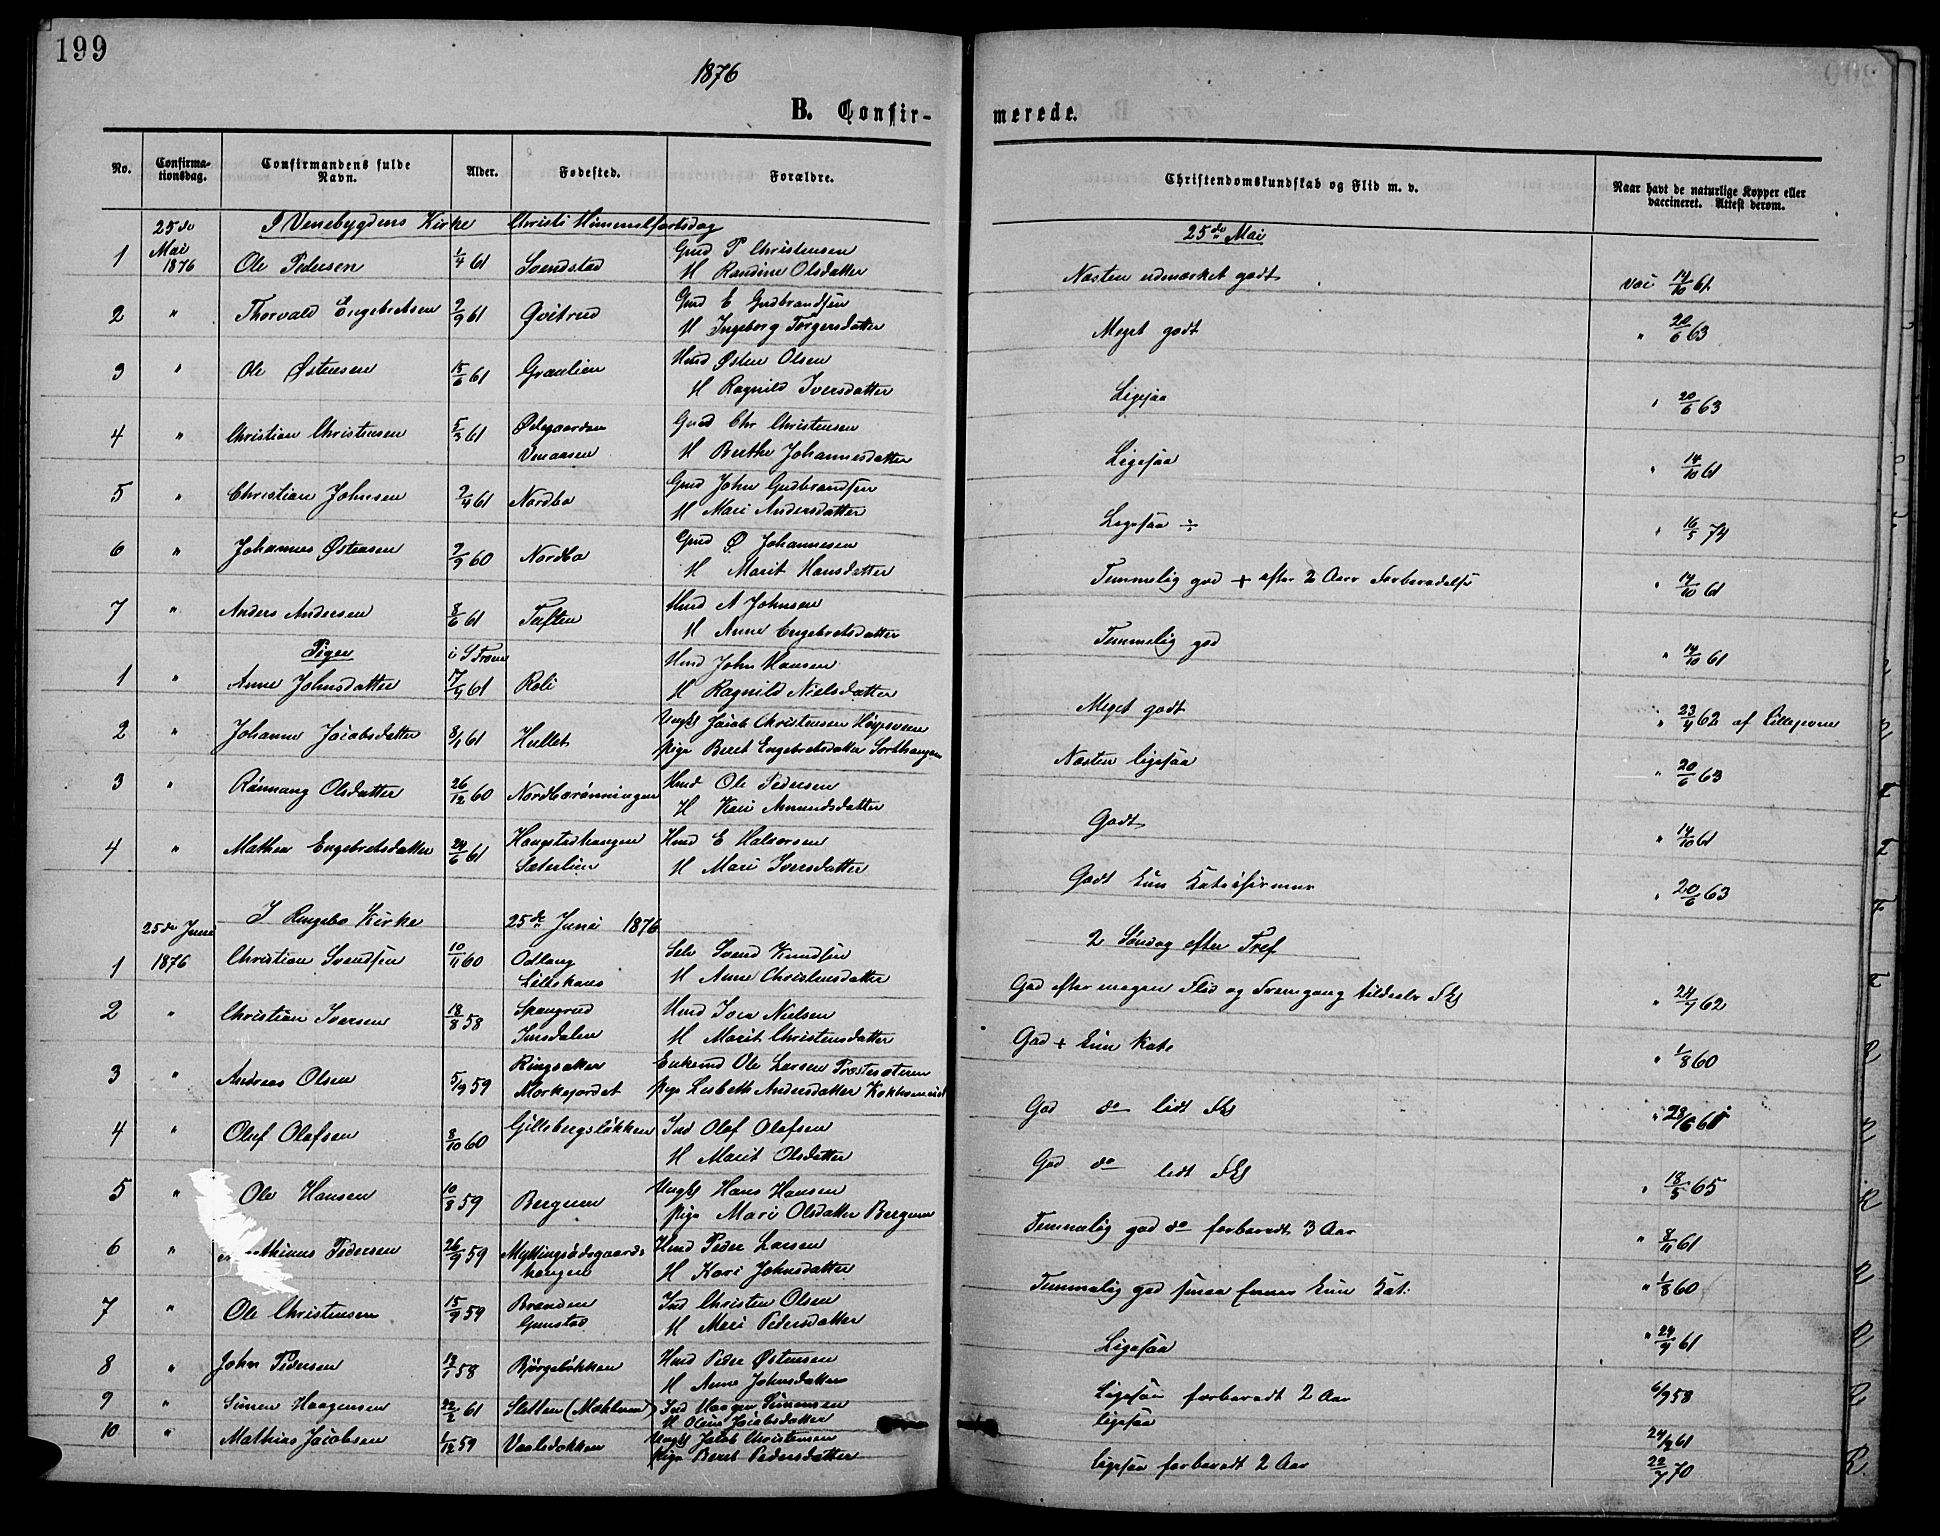 199
1876
B. Confir-
merede.
No.
Confirma-
tionsdag.
Confirmandens fulde
Navn.
Alder.
Fødested.
Forældre.
Christendomskundskab og Flid m. v.
Naar havt de naturlige Kopper eller
vaccineret. Attest derom.
25de Mai 1876 I Venebygdens Kirke Christi Himmelfartsdag 25de Mai
1 Ole Pedersen 1/4 61 Svendstad Gmd P Christensen
H Randine Olsdatter Næsten udmærket godt vac 14/10 61
2 " Thorvald Engebretsen 2/9 61 Qvitrud Gmd E Gudbrandsen
H Ingeborg Torgersdatter Meget godt " 20/6 63
3 " Ole Østensen 15/6 61 Graulien Hmd Østen Olsen
H Ragnild Iversdatter Ligesaa " 20/6 63
4 " Christian Christensen 5/3 61 Ødegaarden
Venaasen Gmd Chr Christensen
H Berthe Johannesdatter Ligesaa " 14/10 61
5 " Christian Johnsen 2/4 61 Nordbo Gmd John Gudbrandsen
H Mari Andersdatter Ligesaa ÷ " 16/5 74
6 " Johannes Østensen 2/9 60 Nordbo Gmd Ø Johannesen
H Marit Hansdatter Temmelig god + efter 2 Aars Forberedelse " 14/10 61
7 " Anders Andersen 8/6 61 Tuften Hmd A Johnsen
H Anne Engebretsdatter Temmelig god " 14/10 61
Piger
1 " Anne Johnsdatter 17/4 61 Roli Hmd John Hansen
H Ragnild Nielsdatter Meget godt " 23/4 62 af
2 " Johanne Jacobsdatter 8/1 61 Hullet Ungkl Jacob Christensen
Pige Beret Engebretsdatter Næsten ligesaa " 20/6 63
3 " Rønnaug Olsdatter 26/12 60 Nordborønningen Hmd Ole Pedersen
H Kari Amundsdatter Godt " 14/10 61
4 " Mathea Engebretsdatter 24/6 61 Haugstadhaugen
Sæterlien Hmd E Halvorsen
H Mari Iversdatter Godt kun " 20/6 63
25de Juni 1876 I Ringebo Kirke 25de Juni 1876 2 Søndag efter Tref
1 Christian Svendsen 10/11 60 Odlang
Lillehaave Selv Svend Knudsen
H Anne Christensdatter God efter megen Flid og Fremgang " 24/7 62
2 " Christian Iversen 18/8 58 Spangrud
Imsdalen Hmd Iver Nielsen
H Marit Christensdatter God + kun Kate " 1/8 60
3 " Andreas Olsen 5/9 59 Ringsaker
Morkejordet Enkemd Ole Larsen Præstesæteren
Pige Lisbeth Andersdatter God do lidt " 23/6 61
4 " Oluf Olafsen 8/10 60 Gillebergsløkken Ind Olaf Olafsen
H Marit Olsdatter God do lidt " 18/5 65
5 " Ole Hansen 10/8 59 Bergum Ungkl Hans Hansen
Pige Mari Olsdatter Bergum Temmelig god do forberedt 3 Aar " 8/11 61
6 " Pedersen 26/9 59 Myttingsødegaards-
haugen Hmd Peder Larsen
H Kari Johnsdatter Temmelig god smaa Evner kun Kat. " 1/8 60
7 " Ole Christensen 15/9 59 Branden
Gunstad Ind Christen Olsen
H Mari Pedersdatter Ligesaa " 24/9 61
8 " John Pedersen 12/1 58 Bjørgeløkken Hmd Peder Østensen
H Anne Johnsdatter Ligesaa forberedt 2 Aar 6/9 58
9 " Simen Haagensen 22/2 61 Sletten Ind Haagen Simensen
H Oline Jacobsdatter ligesaa 24/9 61
10 " Mathias Jacobsen 1/12 59 Vaaledokken Ungkl Jacob Christensen
Pige Beret Pedersdatter Ligesaa forberedt 2 Aar 22/7 70